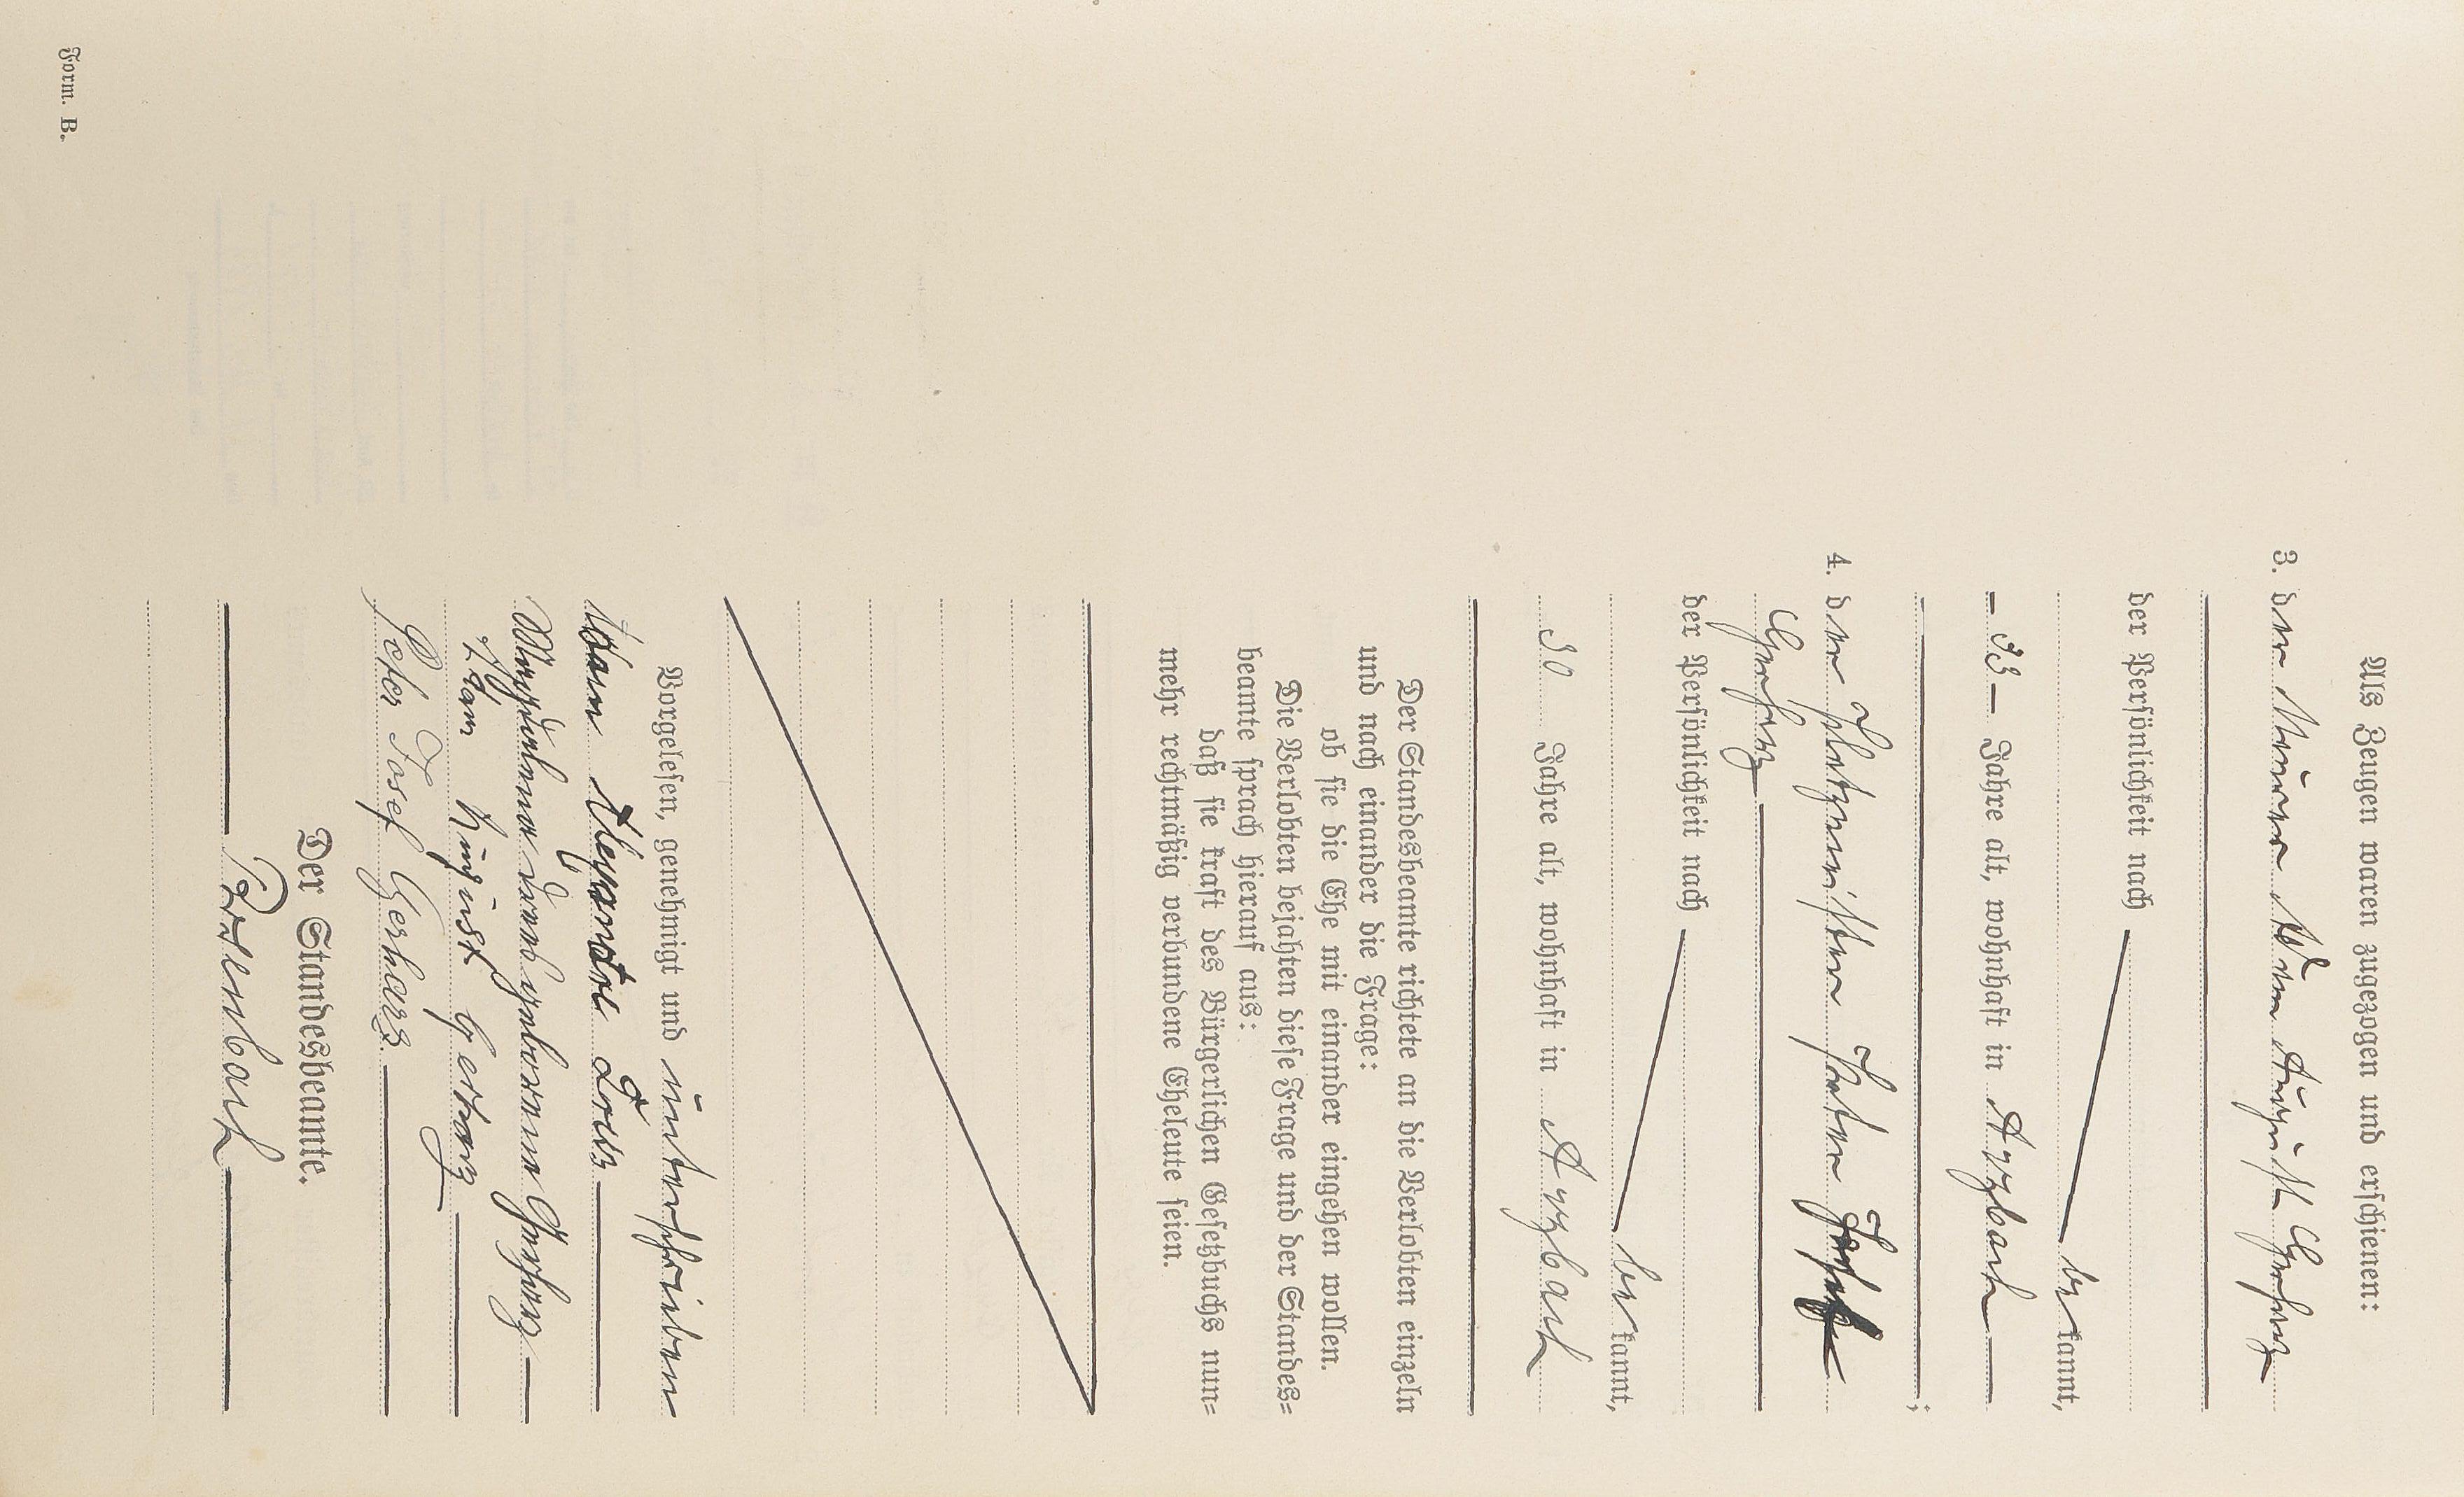 Als Zeugen waren zugezogen und erschienen:
3. der Maurer Adam August Gerharz
der Persönlichkeit nach
be kannt,
– 33 – Jahre alt, wohnhaft in Arzbach
;
4. der Peter Josef
Gerharz
der Persönlichkeit nach
be kannt,
30 Jahre alt, wohnhaft in Arzbach
Der Standesbeamte richtete an die Verlobten einzeln
und nach einander die Frage:
ob sie die Ehe mit einander eingehen wollen.
Die Verlobten bejahten diese Frage und der Standes=
beamte sprach hierauf aus:
daß sie kraft des Bürgerlichen Gesetzbuchs nun=
mehr rechtmäßig verbundene Eheleute seien.
Vorgelesen, genehmigt und unterschrieben
Adam Louis
geborene Gerharz
Adam August Gerharz
Peter Josef Gerharz.
Der Standesbeamte.
Form. B.